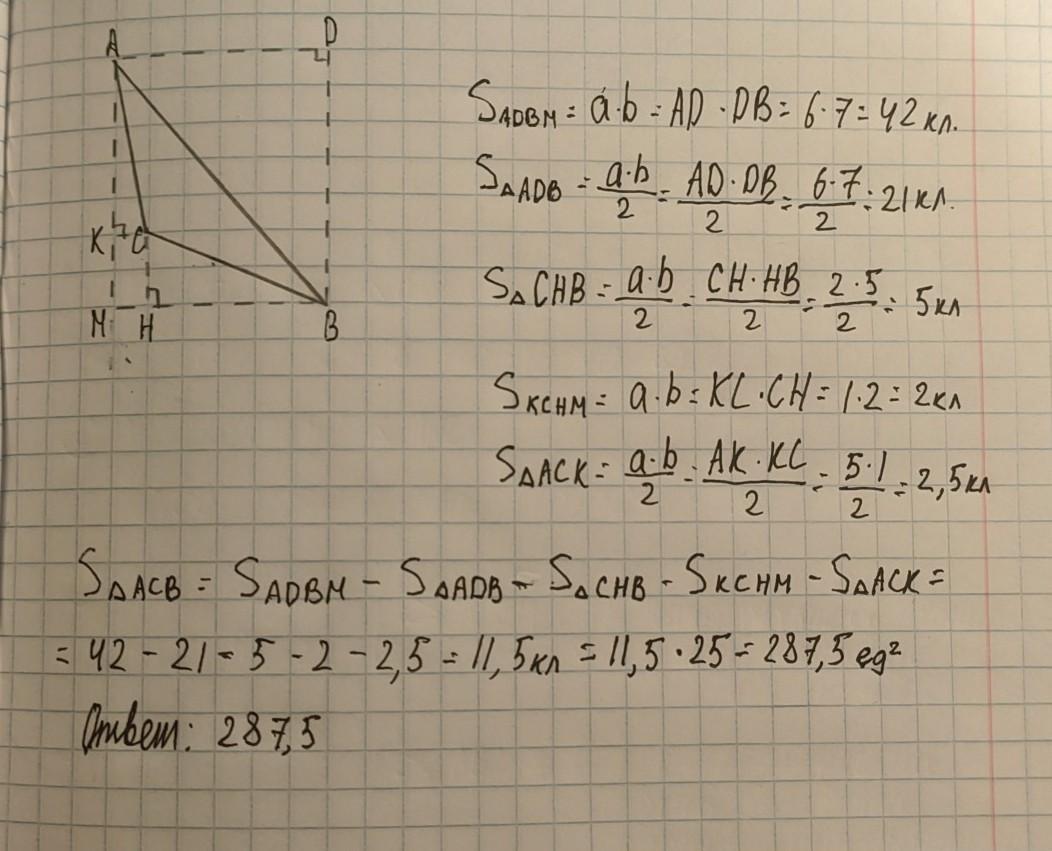 A D
S ADBM = a·b = AD·DB = 6·7 = 42 кл.
S△ADB = a·b/2 = AD·DB/2 = 6·7/2 = 21 кл.
K C
S△CHB = a·b/2 = CH·HB/2 = 2·5/2 = 5 кл
M H B
S KCHM = a·b = KC·CH = 1·2 = 2 кл
S△ACK = a·b/2 = AK·KC/2 = 5·1/2 = 2,5 кл
S△ACB = S ADBM - S△ADB - S△CHB - S KCHM - S△ACK =
= 42 - 21 - 5 - 2 - 2,5 = 11,5 кл = 11,5·25 = 287,5 ед²
Ответ: 287,5